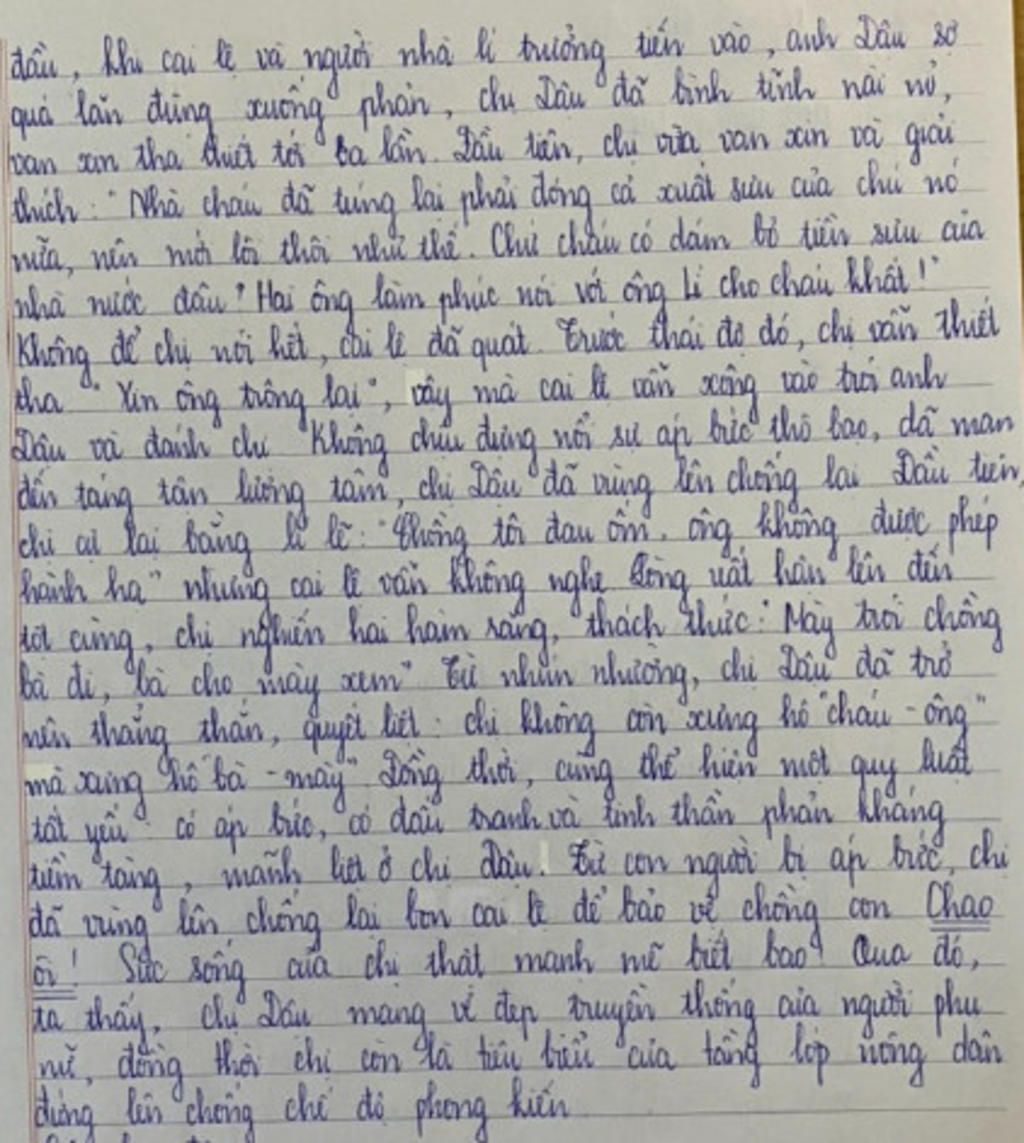 đầu, khi cai lệ và người nhà lí trưởng tiến vào, anh Dậu sợ
quá lăn đùng xuống phản, chị Dậu đã bình tĩnh nài nỉ,
van xin tha thiết tới ba lần. Đầu tiên, chị vừa van xin và giải
thích: "Nhà cháu đã túng lại phải đóng cả xuất sưu của chú nó
nữa, nên mới lôi thôi như thế. Chứ cháu có dám bỏ tiền sưu của
nhà nước đâu? Hai ông làm phúc nói với ông lí cho cháu khất!"
Không để chị nói hết, cai lệ đã quát. Trước thái độ đó, chị vẫn thiết
tha "Xin ông trông lại", vậy mà cai lệ vẫn xông vào trói anh
Dậu và đánh chị. Không chịu đựng nổi sự áp bức thô bạo, dã man
đến táng tận lương tâm, chị Dậu đã vùng lên chống lại. Đầu tiên,
chị cự lại bằng lí lẽ: "Chồng tôi đau ốm, ông không được phép
hành hạ" nhưng cai lệ vẫn không nghe. Lòng uất hận lên đến
tột cùng, chị nghiến hai hàm răng, thách thức: "Mày trói chồng
bà đi, bà cho mày xem" Từ nhún nhường, chị Dậu đã trở
nên thẳng thắn, quyết liệt: chị không còn xưng hô "cháu - ông"
mà xưng hô "bà - mày". Đồng thời, cũng thể hiện một quy luật
tất yếu: có áp bức, có đấu tranh và tinh thần phản kháng
tiềm tàng, mãnh liệt ở chị Dậu. Từ con người bị áp bức, chị
đã vùng lên chống lại bọn cai lệ để bảo vệ chồng con. Chao
ôi! Sức sống của chị thật mạnh mẽ biết bao! Qua đó,
ta thấy, chị Dậu mang vẻ đẹp truyền thống của người phụ
nữ, đồng thời chị còn là tiêu biểu của tầng lớp nông dân
đứng lên chống chế độ phong kiến